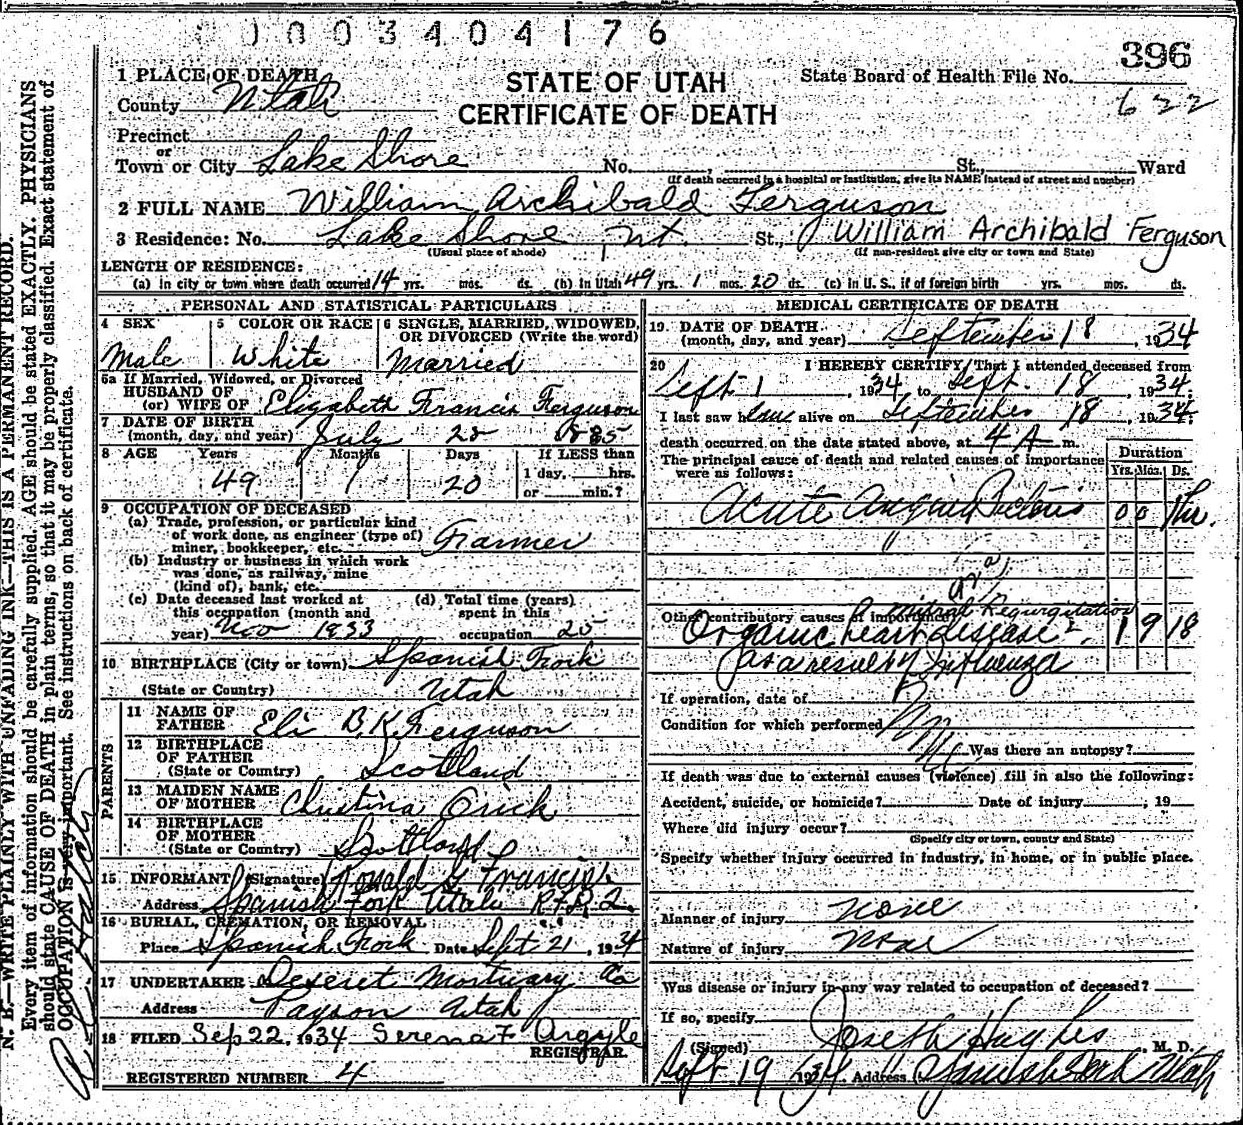 0003404176
396
1 PLACE OF DEATH
STATE OF UTAH
State Board of Health File No.
County Utah
622
CERTIFICATE OF DEATH
Precinct
or
Town or City Lake Shore No. St., Ward
(If death occurred in a hospital or institution, give its NAME instead of street and number)
2 FULL NAME William Archibald Ferguson
3 Residence: No. Lake Shore, Ut. St., William Archibald Ferguson
(Usual place of abode) (If non-resident give city or town and State)
LENGTH OF RESIDENCE:
(a) In city or town where death occurred 14 yrs. mos. ds. (b) In Utah 49 yrs. 1 mos. 20 ds. (c) In U. S., if of foreign birth yrs. mos. ds.
PERSONAL AND STATISTICAL PARTICULARS
4 SEX 5 COLOR OR RACE 6 SINGLE, MARRIED, WIDOWED, OR DIVORCED (Write the word)
Male White Married
6a If Married, Widowed, or Divorced
HUSBAND OF
(or) WIFE OF Elizabeth Francis Ferguson
7 DATE OF BIRTH
(month, day, and year) July 28 1885
8 AGE Years Months Days If LESS than
1 day, hrs.
49 1 20 or min.?
9 OCCUPATION OF DECEASED
(a) Trade, profession, or particular kind
of work done, as engineer (type of)
miner, bookkeeper, etc. Farmer
(b) Industry or business in which work
was done, as railway, mine
(kind of), bank, etc.
(c) Date deceased last worked at (d) Total time (years)
this occupation (month and spent in this
year) Nov 1933 occupation 25
10 BIRTHPLACE (City or town) Spanish Fork
(State or Country) Utah
PARENTS
11 NAME OF
FATHER Eli B. K. Ferguson
12 BIRTHPLACE
OF FATHER
(State or Country) Scotland
13 MAIDEN NAME
OF MOTHER Christina
14 BIRTHPLACE
OF MOTHER
(State or Country) Scotland
15 INFORMANT (Signature) Ronald Francis
Address Spanish Fork Utah R.F.D. 2.
16 BURIAL, CREMATION, OR REMOVAL
Place Spanish Fork Date Sept 21, 1934
17 UNDERTAKER Deseret Mortuary Co
Address Payson Utah
18 FILED Sep 22, 1934 Serena F Argyle
REGISTRAR.
REGISTERED NUMBER 4
MEDICAL CERTIFICATE OF DEATH
19 DATE OF DEATH
(month, day, and year) September 18, 1934
20 I HEREBY CERTIFY, That I attended deceased from
Sept 1, 1934 to Sept. 18, 1934.
I last saw him alive on September 18, 1934.
death occurred on the date stated above, at 4 A m.
The principal cause of death and related causes of importance
were as follows:
Duration
Yrs. Mos. Ds.
Acute Angina Pectoris 0 0 1 hr.
Other contributory causes of importance:
Mitral Regurgitation
Organic heart disease 1 9 18
as a result of Influenza
If operation, date of
Condition for which performed
Was there an autopsy?
If death was due to external causes (violence) fill in also the following:
Accident, suicide, or homicide? Date of injury , 19
Where did injury occur?
(Specify city or town, county and State)
Specify whether injury occurred in industry, in home, or in public place.
Manner of injury none
Nature of injury none
Was disease or injury in any way related to occupation of deceased?
If so, specify
(Signed) Joseph Hughes, M. D.
Sept 19 1934 Address Spanish Fork Utah
N. B.—WRITE PLAINLY WITH UNFADING INK—THIS IS A PERMANENT RECORD.
Every item of information should be carefully supplied. AGE should be stated EXACTLY. PHYSICIANS
should state CAUSE OF DEATH in plain terms, so that it may be properly classified. Exact statement of
OCCUPATION is very important. See instructions on back of certificate.